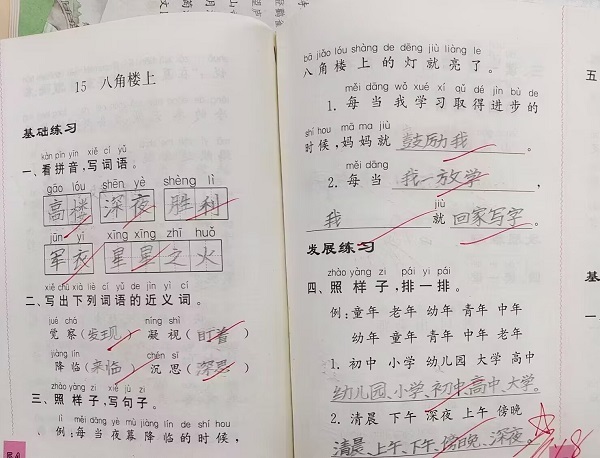 15 八角楼上
基础练习
kàn pīn yīn xiě cí yǔ
一、看拼音,写词语。
gāo lóu shēn yè shèng lì
高楼 深夜 胜利
jūn yī xīng xīng zhī huǒ
军衣 星星之火
xiě chū xià liè cí yǔ de jìn yì cí
二、写出下列词语的近义词。
jué chá níng shì
觉察(发现) 凝视(盯着)
jiàng lín chén sī
降临(来临) 沉思(深思)
zhào yàng zi xiě jù zi
三、照样子,写句子。
lì měi dāng yè mù jiàng lín de shí hou
例:每当夜幕降临的时候,
bā jiǎo lóu shàng de dēng jiù liàng le
八角楼上的灯就亮了。
měi dāng wǒ xué xí qǔ dé jìn bù de
1. 每当我学习取得进步的
shí hou mā ma jiù
时候,妈妈就鼓励我。
měi dāng
2. 每当我一放学,
jiù
我就回家写字。
发展练习
zhào yàng zi pái yì pái
四、照样子,排一排。
例:童年 老年 幼年 青年 中年
幼年 童年 青年 中年 老年
1. 初中 小学 幼儿园 大学 高中
幼儿园、小学、初中、高中、大学。
2. 清晨 下午 深夜 上午 傍晚
清晨、上午、下午、傍晚、深夜。